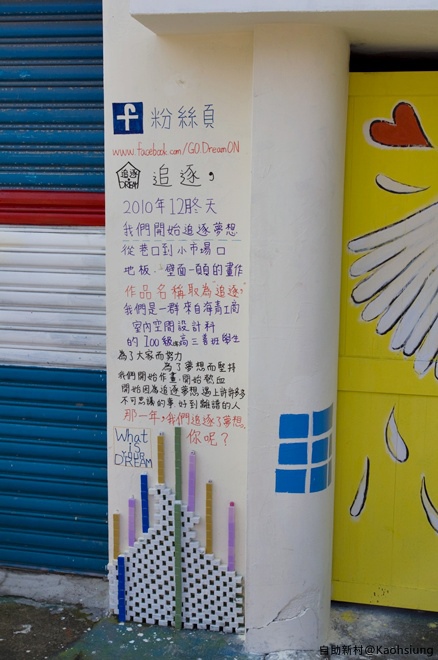 f 粉絲頁
www.facebook.com/GO.DreamON
追逐 DREAM 追逐，
2010年12月冬天
我們開始追逐夢想
從巷口到小市場口
地板，壁面一面面的畫作
作品名稱取為"追逐，"
我們是一群來自海青工商
室內空間設計科
的100級 高三春班學生
為了大家而努力
為了夢想而堅持
我們開始作畫、開始熱血
開始因為追逐夢想遇上許許多多
不可思議的事、好到離譜的人
那一年，我們追逐了夢想，
你呢？
What
is
YOUR
DREAM
自助新村@Kaohsiung